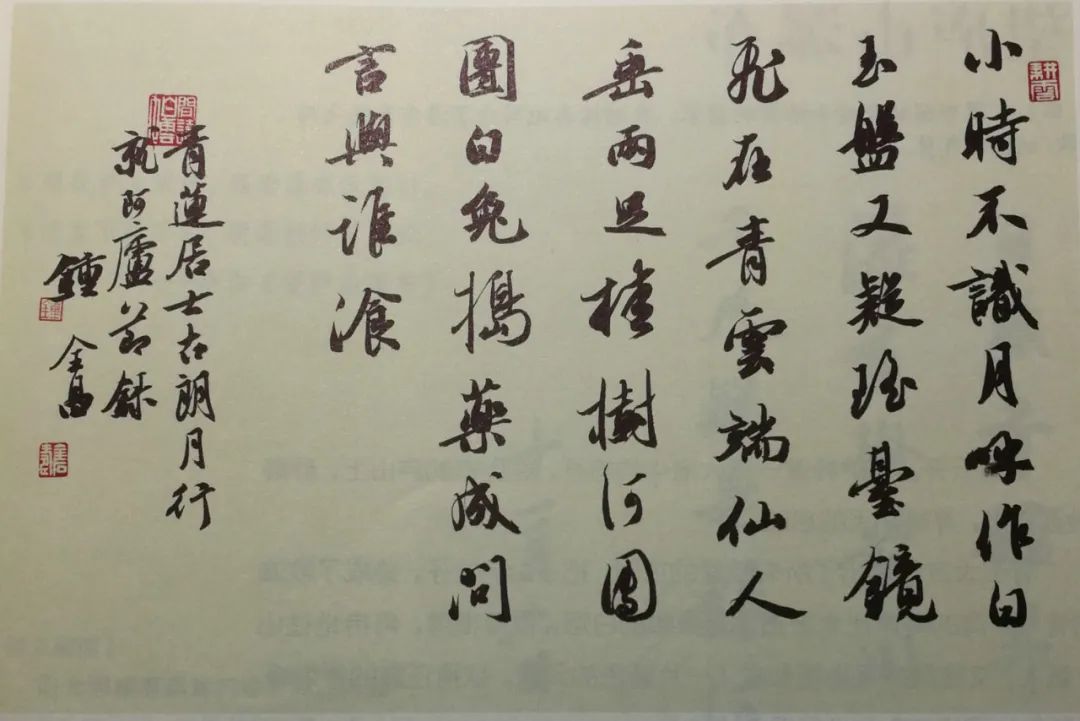 耕雲
小時不識月呼作白
玉盤又疑瑤臺鏡
飛在青雲端仙人
垂兩足桂樹何團
團白兔搗藥成問
言與誰湌
青蓮居士古朗月行
阿廬節錄
鍾金昌